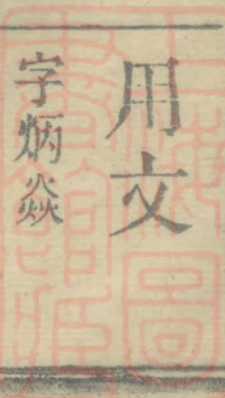 用文
字炳焱